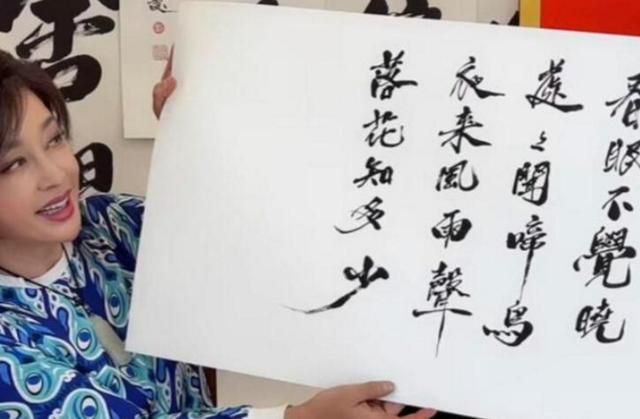 春眠不覺曉
處々聞啼鳥
夜來風雨聲
落花知多少